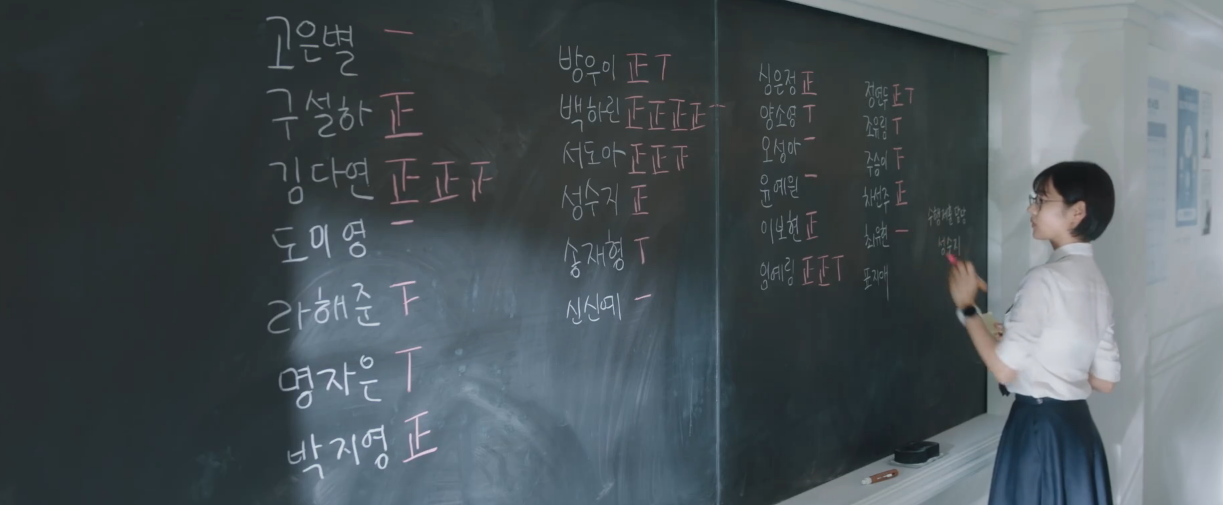 고은별 一
구설하 正
김다연 正正F
도미영 一
라해준 F
명자은 T
박지영 正
방우이 正T
백하린 正正正正一
서도아 正正正
성수지 正
송재형 T
신신예 一
심은정 正
양소영 T
오성아 一
윤예원 一
이보현 正
임예림 正正T
정연두 正T
조유림 T
주승이 F
차선주 正
최유현 一
표지애